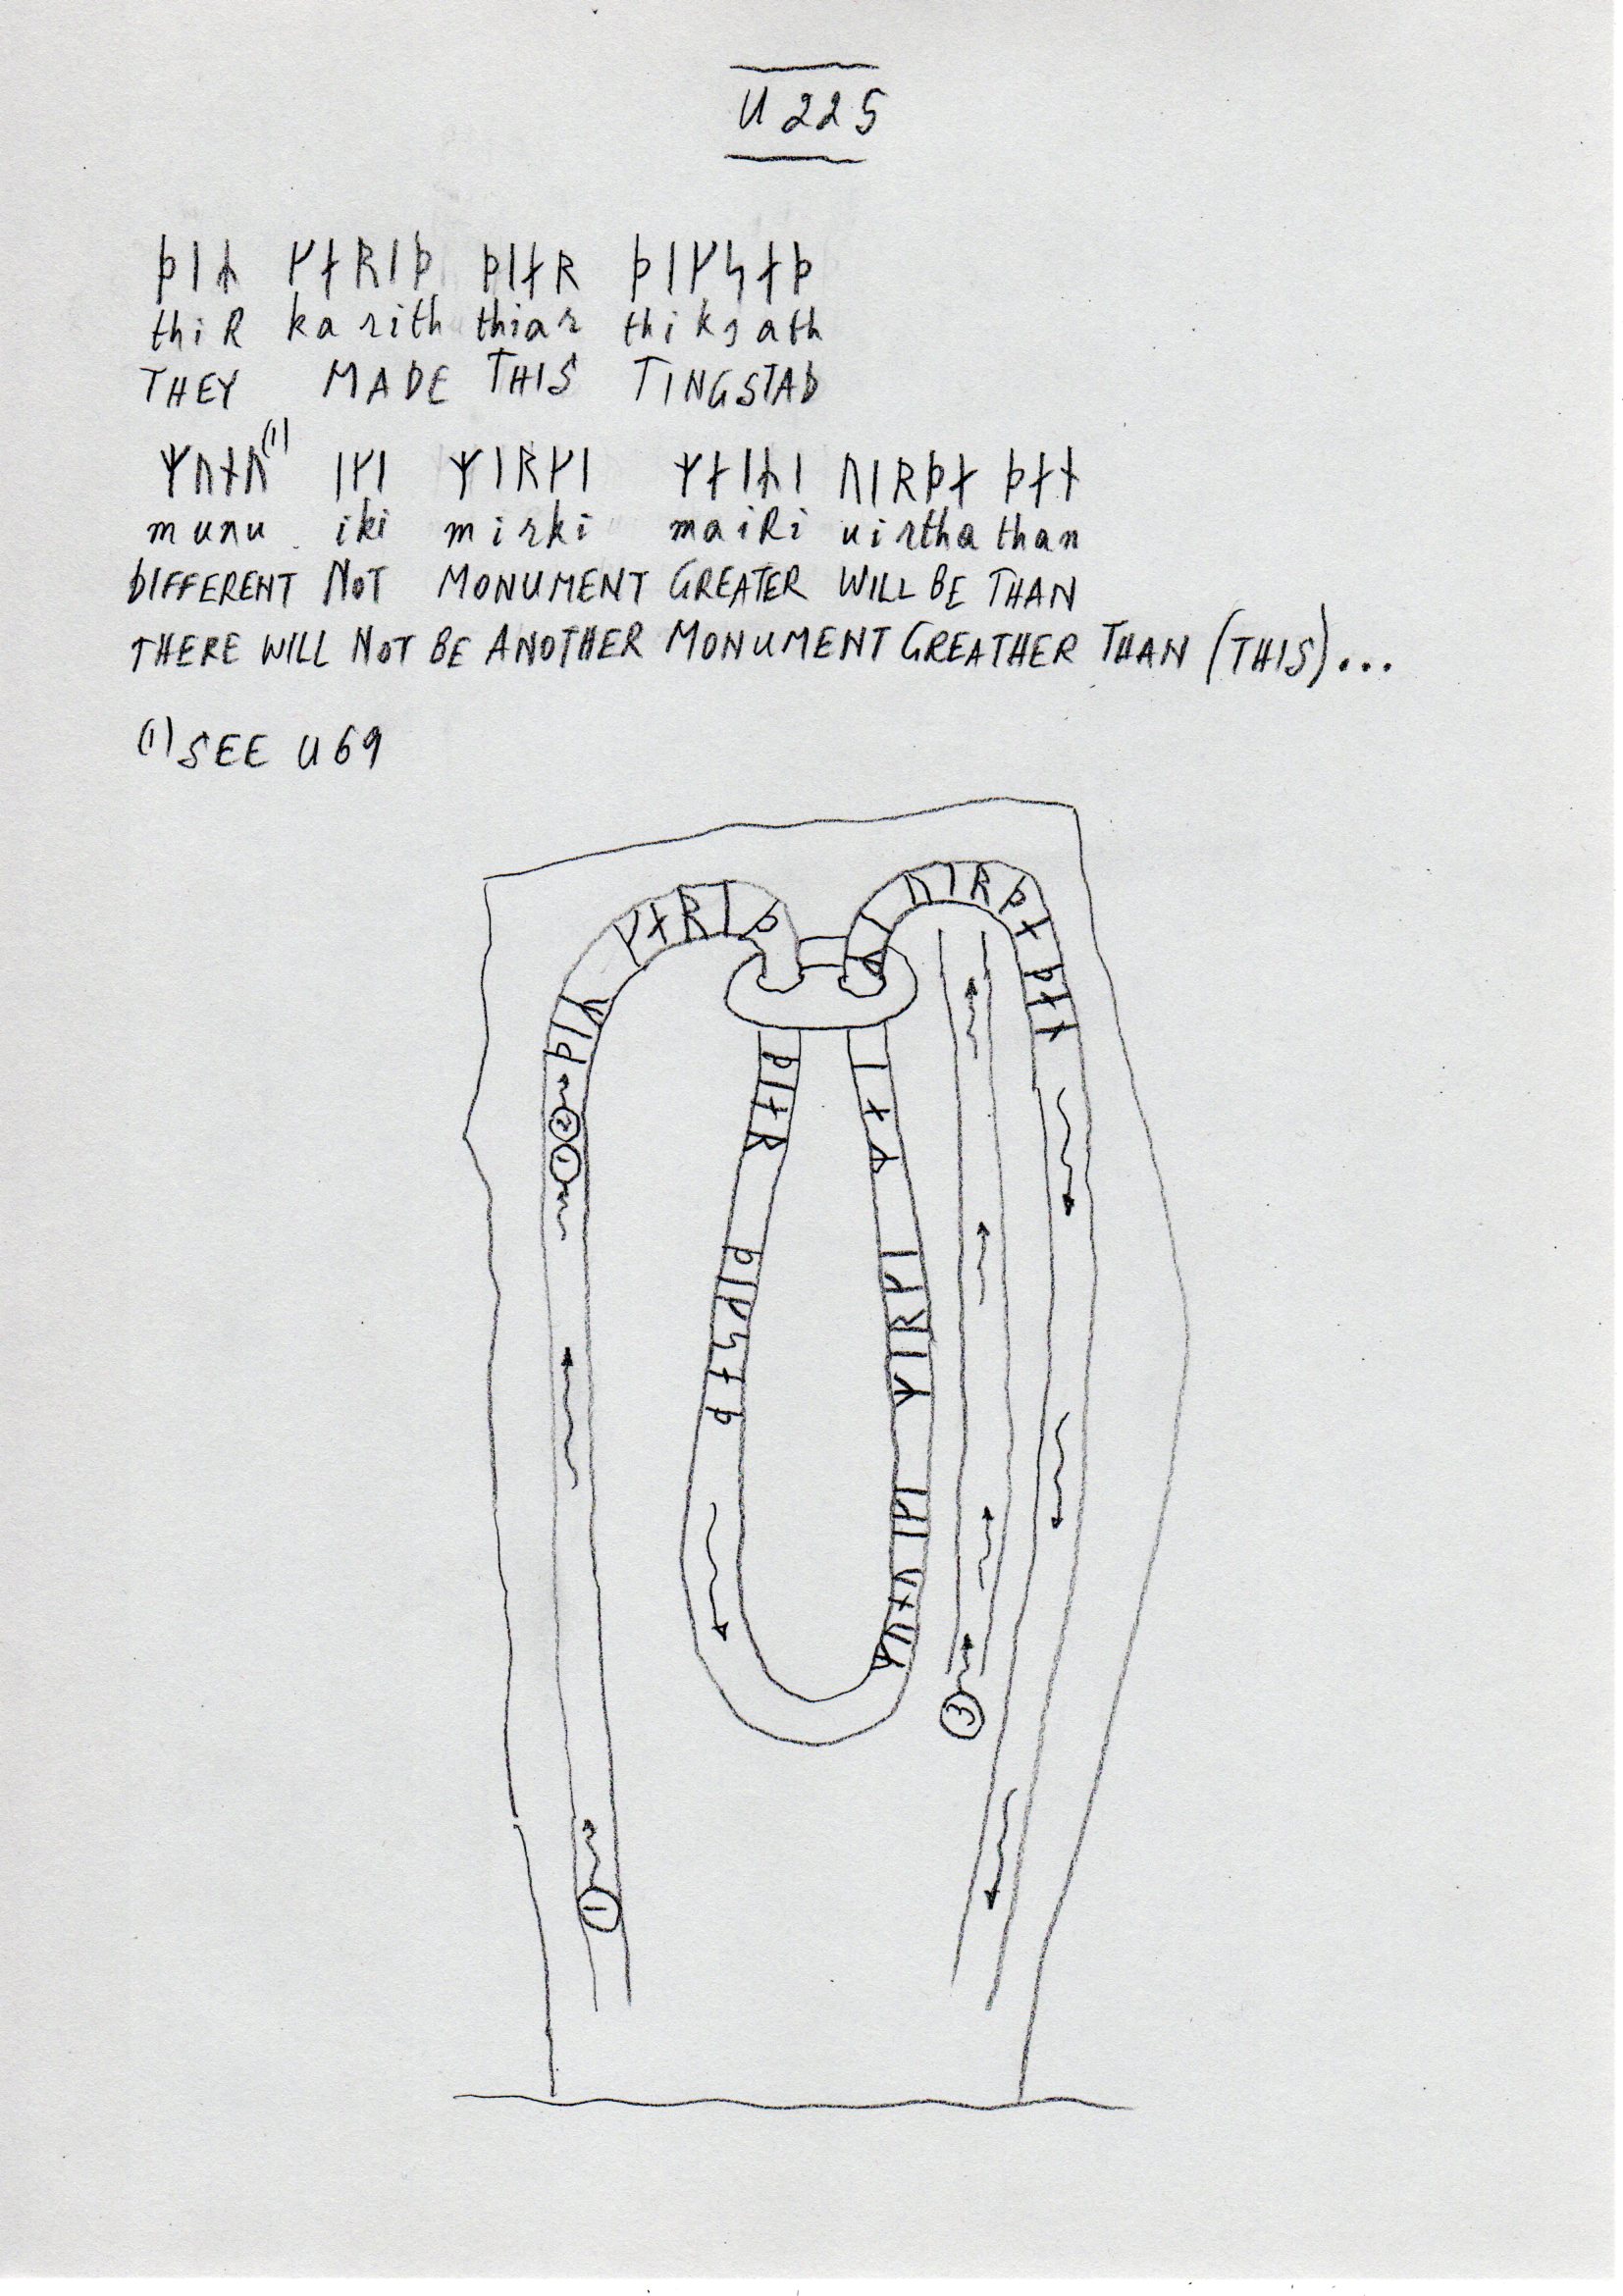 U 225
ᚦᛁᛦ ᚴᛅᚱᛁᚦ ᚦᛁᛅᚱ ᚦᛁᚴᛋᛅᚦ
thiR karith thiar thiksath
THEY MADE THIS TINGSTAD
ᛘᚢᚾᚢ(1) ᛁᚴᛁ ᛘᛁᚱᚴᛁ ᛘᛅᛁᛦᛁ ᚢᛁᚱᚦᛅ ᚦᛅᚾ
munu iki mirki maiRi uirtha than
DIFFERENT NOT MONUMENT GREATER WILL BE THAN
THERE WILL NOT BE ANOTHER MONUMENT GREATHER THAN (THIS)...
(1) SEE U 69
① ② ᚦᛁᛦ ᚴᛅᚱᛁᚦ
ᚦᛁᛅᚱ ᚦᛁᚴᛋᛅᚦ
ᛘᚢᚾᚢ ᛁᚴᛁ ᛘᛁᚱᚴᛁ ᛘᛅᛁ
ᛦᛁ ᚢᛁᚱᚦᛅ ᚦᛅᚾ
③
①